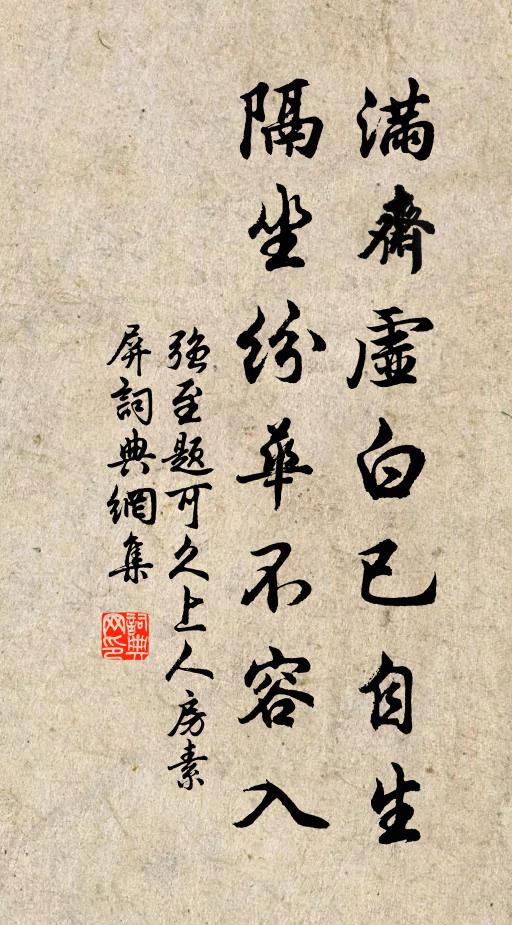 滿齋虛白已自生
隔坐紛華不容入
強至題可久上人房素
屏詞典網集
詞典
网印